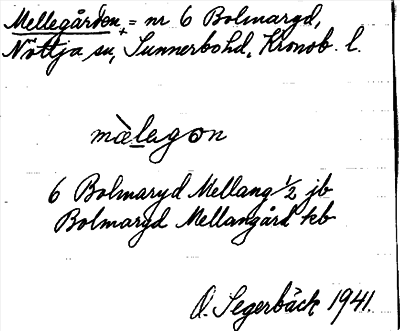 Mellegården + = nr 6 Bolmaryd,
Nöttja sn, Sunnerbo hd, Kronob. l.
mæ̀legɔn
6 Bolmaryd Mellang 1/2 jb
Bolmaryd Mellangård kb
O. Segerbäck 1941.